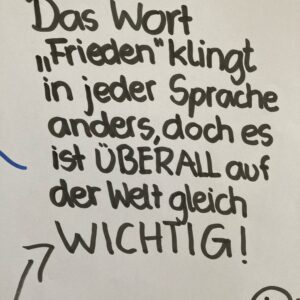 Das Wort
„Frieden“ klingt
in jeder Sprache
anders, doch es
ist ÜBERALL auf
der Welt gleich
WICHTIG!